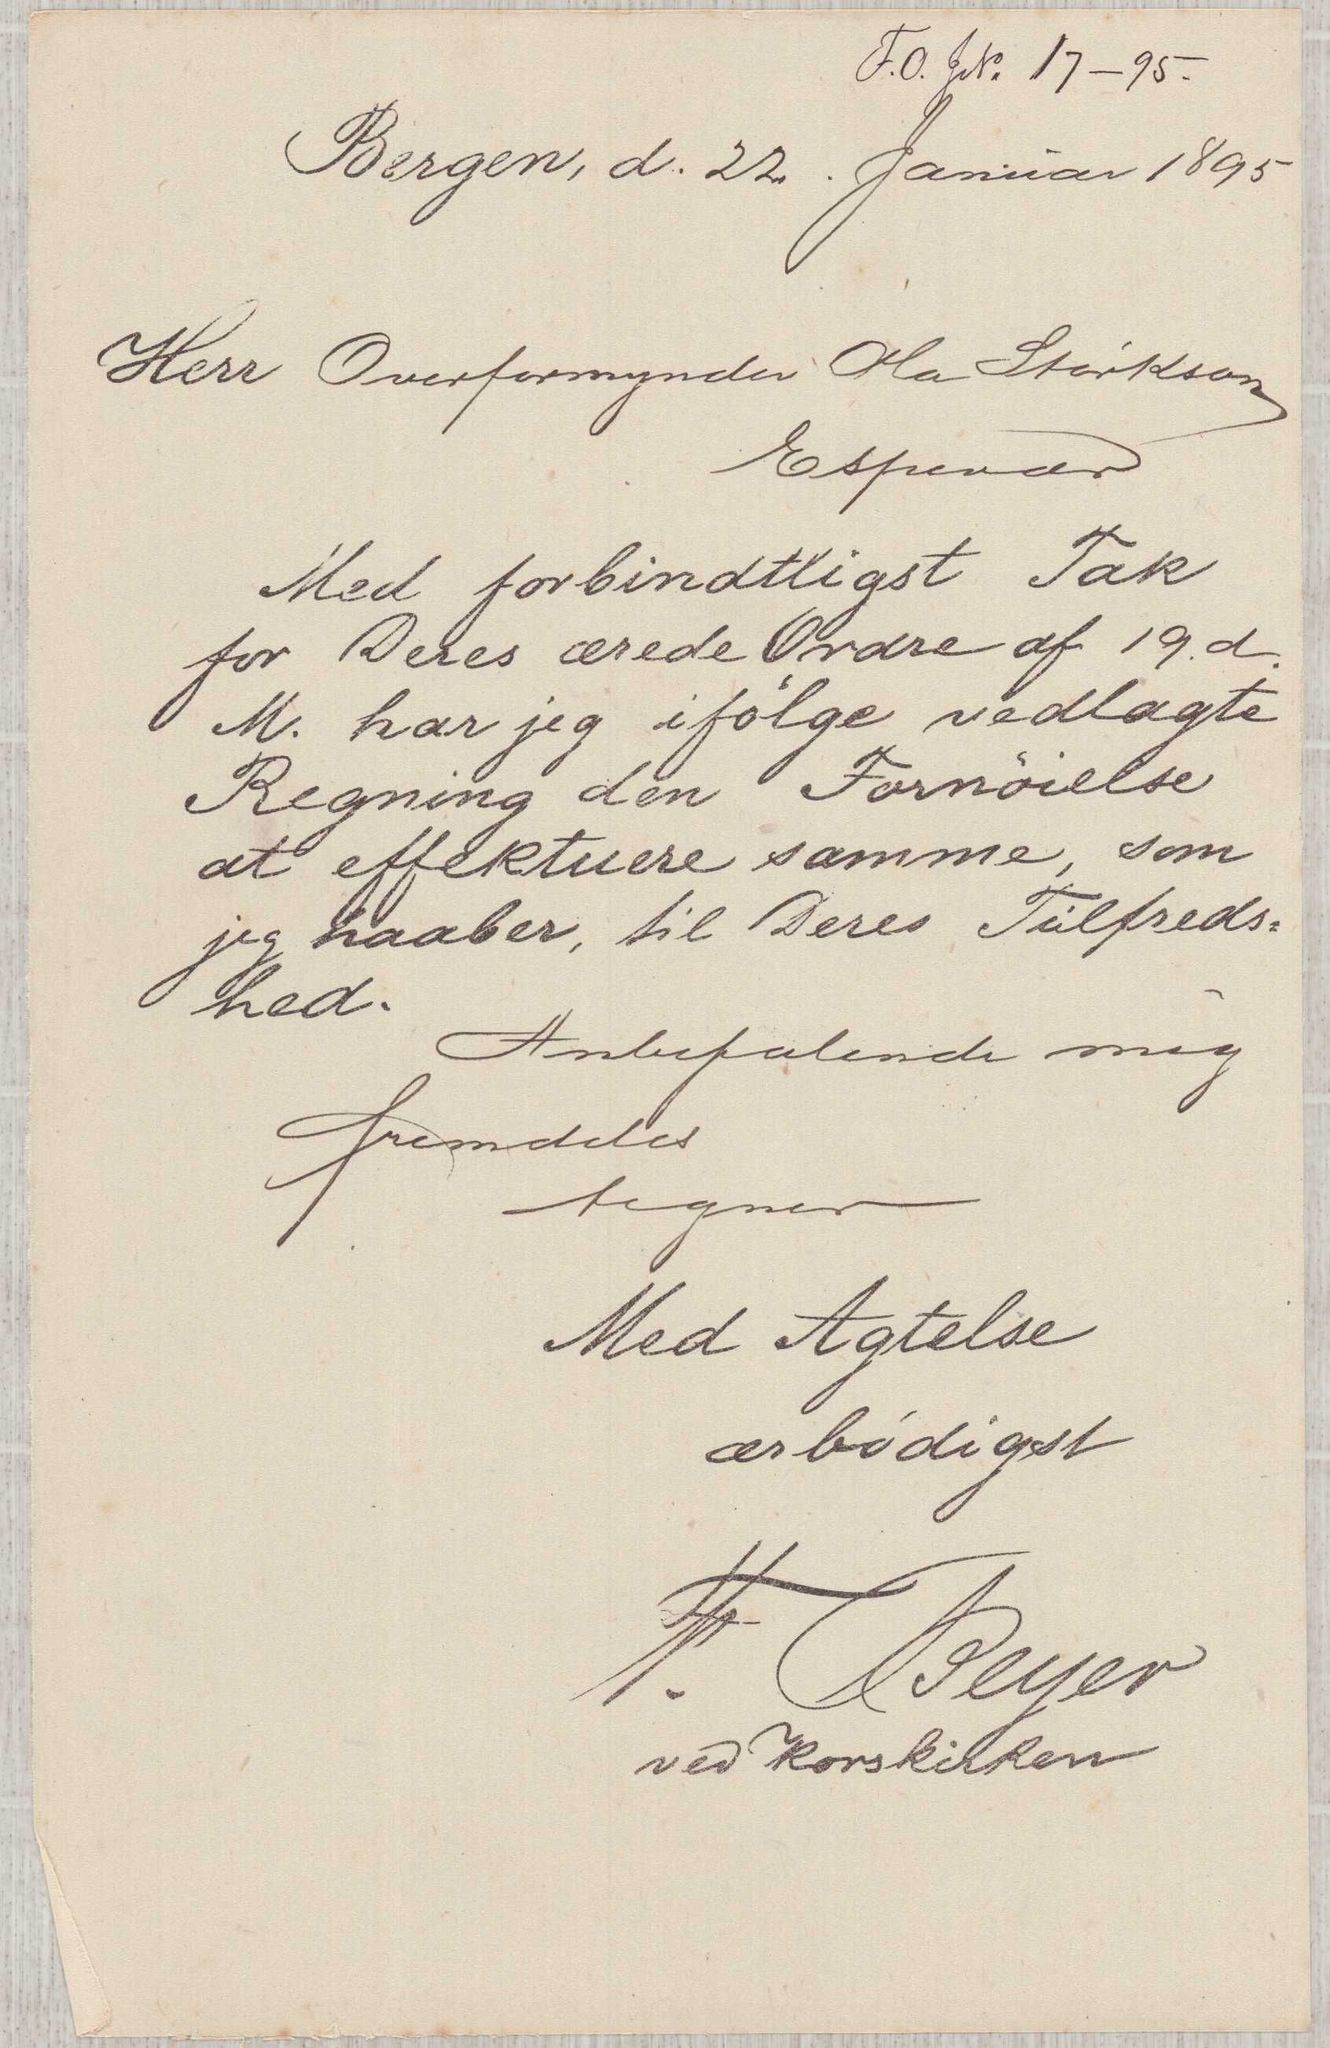 F.O. J.N. 17-95.
Bergen, d. 22. Januar 1895
Herr Overformynder Ola Störkson
Espevær
Med forbindtligst Tak
for Deres ærede Ordre af 19. d.
M. har jeg ifölge vedlagte
Regning den Fornöielse
at effektuere samme, som
jeg haaber, til Deres Tilfreds=
hed.
Anbefalende mig
fremdeles
tegner
Med Agtelse
ærbödigst
F. Beyer
ved Korskirken